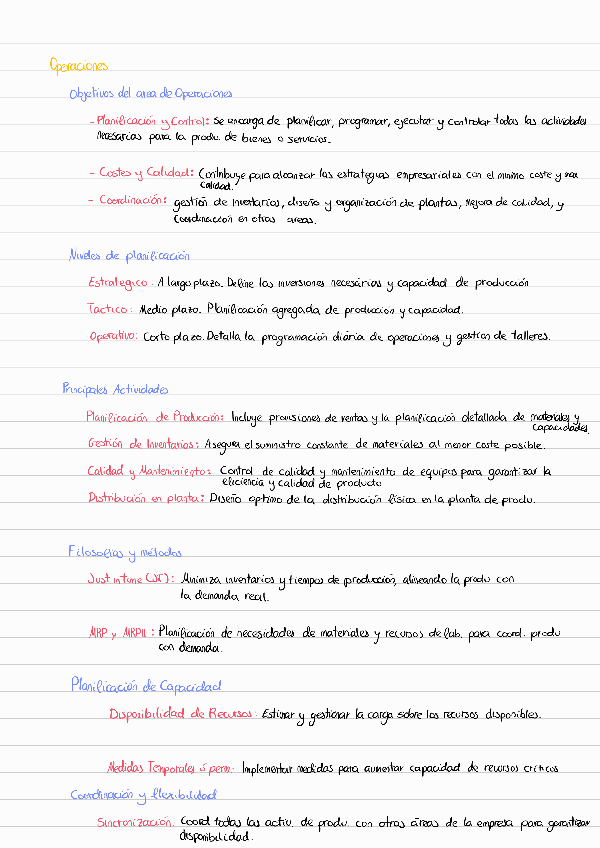 Operaciones
Objetivos del area de Operaciones
- Planificación y Control: Se encarga de planificar, programar, ejecutar y controlar todas las actividades
necesarias para la produ. de bienes o servicios.
- Costes y Calidad: Contribuye para alcanzar las estrategias empresariales con el mínimo coste y max
calidad.
- Coordinación: gestión de inventarios, diseño y organización de plantas, mejora de calidad, y
coordinación en otras areas.
Niveles de planificación
Estrategico: A largo plazo. Define las inversiones necesarias y capacidad de producción
Tactico: Medio plazo. Planificación agregada de producción y capacidad.
Operativo: Corto plazo. Detalla la programación diaria de operaciones y gestión de talleres.
Principales Actividades
Planificación de Producción: Incluye previsiones de ventas y la planificación detallada de materiales y
capacidades.
Gestión de Inventarios: Asegura el suministro constante de materiales al menor coste posible.
Calidad y Mantenimiento: Control de calidad y mantenimiento de equipos para garantizar la
eficiencia y calidad de producto
Distribución en planta: Diseño optimo de la distribución física en la planta de produ.
Filosofias y métodos
Just in time (JIT): Minimiza inventarios y tiempos de producción, alineando la produ con
la demanda real.
MRP y MRPII: Planificación de necesidades de materiales y recursos de fab. para coord. produ
con demanda.
Planificación de Capacidad
Disponibilidad de Recursos: Estimar y gestionar la carga sobre los recursos disponibles.
Medidas Temporales ó perm: Implementar medidas para aumentar capacidad de recursos criticos
Coordinación y flexibilidad
Sincronización: Coord todas las activ. de produ con otras áreas de la empresa para garantizar
disponibilidad.